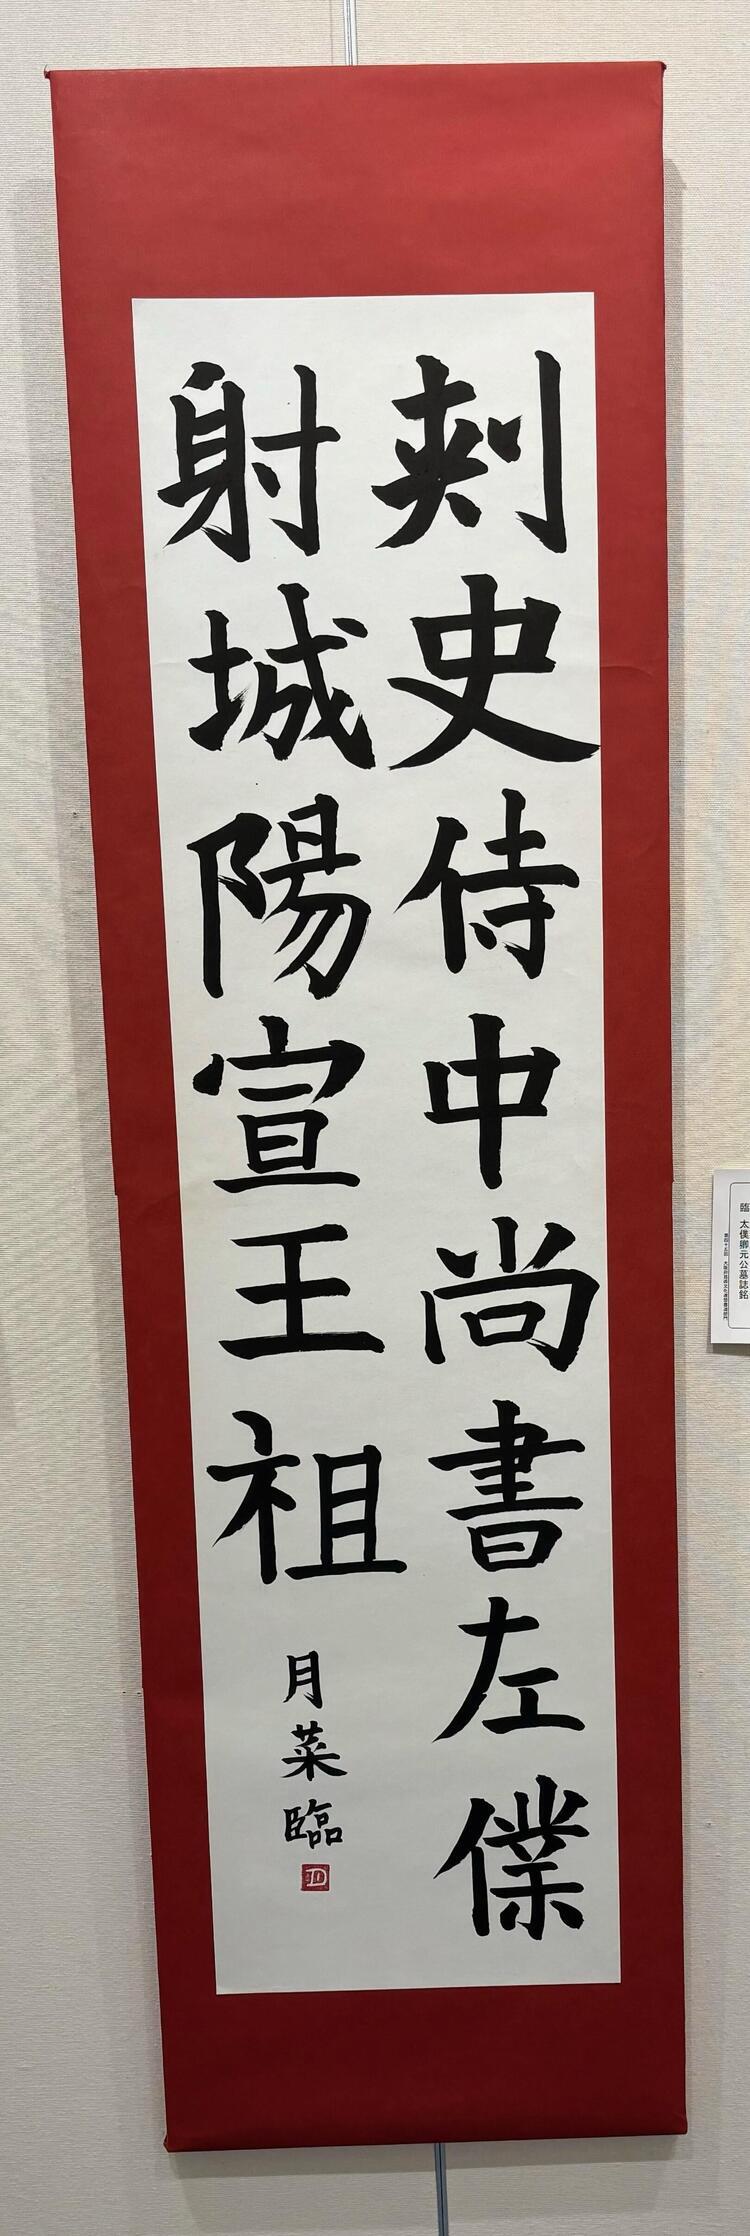 刺史侍中尚書左僕
射城陽宣王祖
月菜臨
臨 太僕卿元公墓誌銘